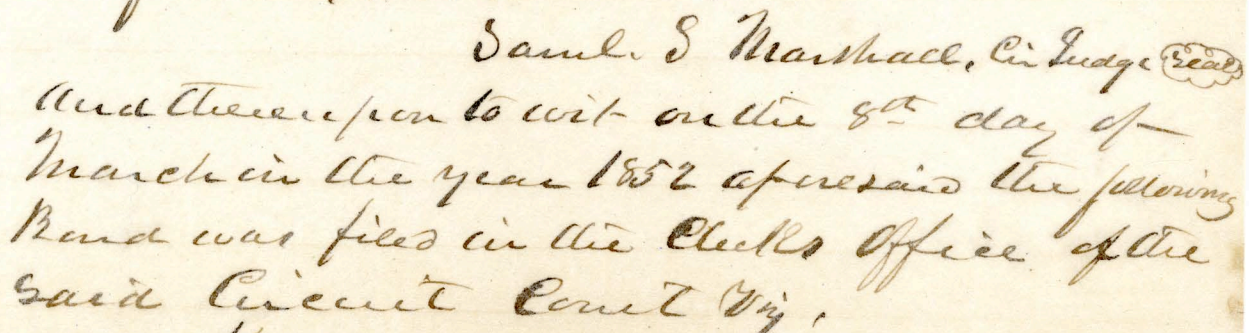 Saml. S Marshall, Cir Judge Seal
And thereupon to wit on the 8th day of
March in the year 1852 aforesaid the following
Bond was filed in the Clerks Office of the
said Circuit Court Viz,